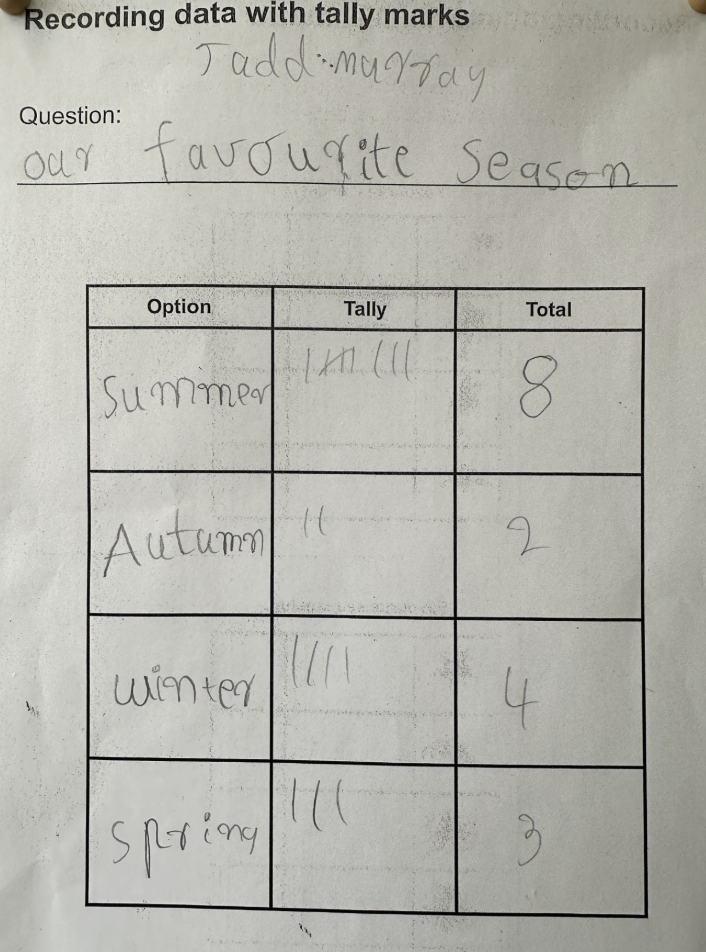 Recording data with tally marks
Jadd murray
Question:
our favourite season
Option Tally Total
Summer 8
Autumn 2
winter 4
Spring 3